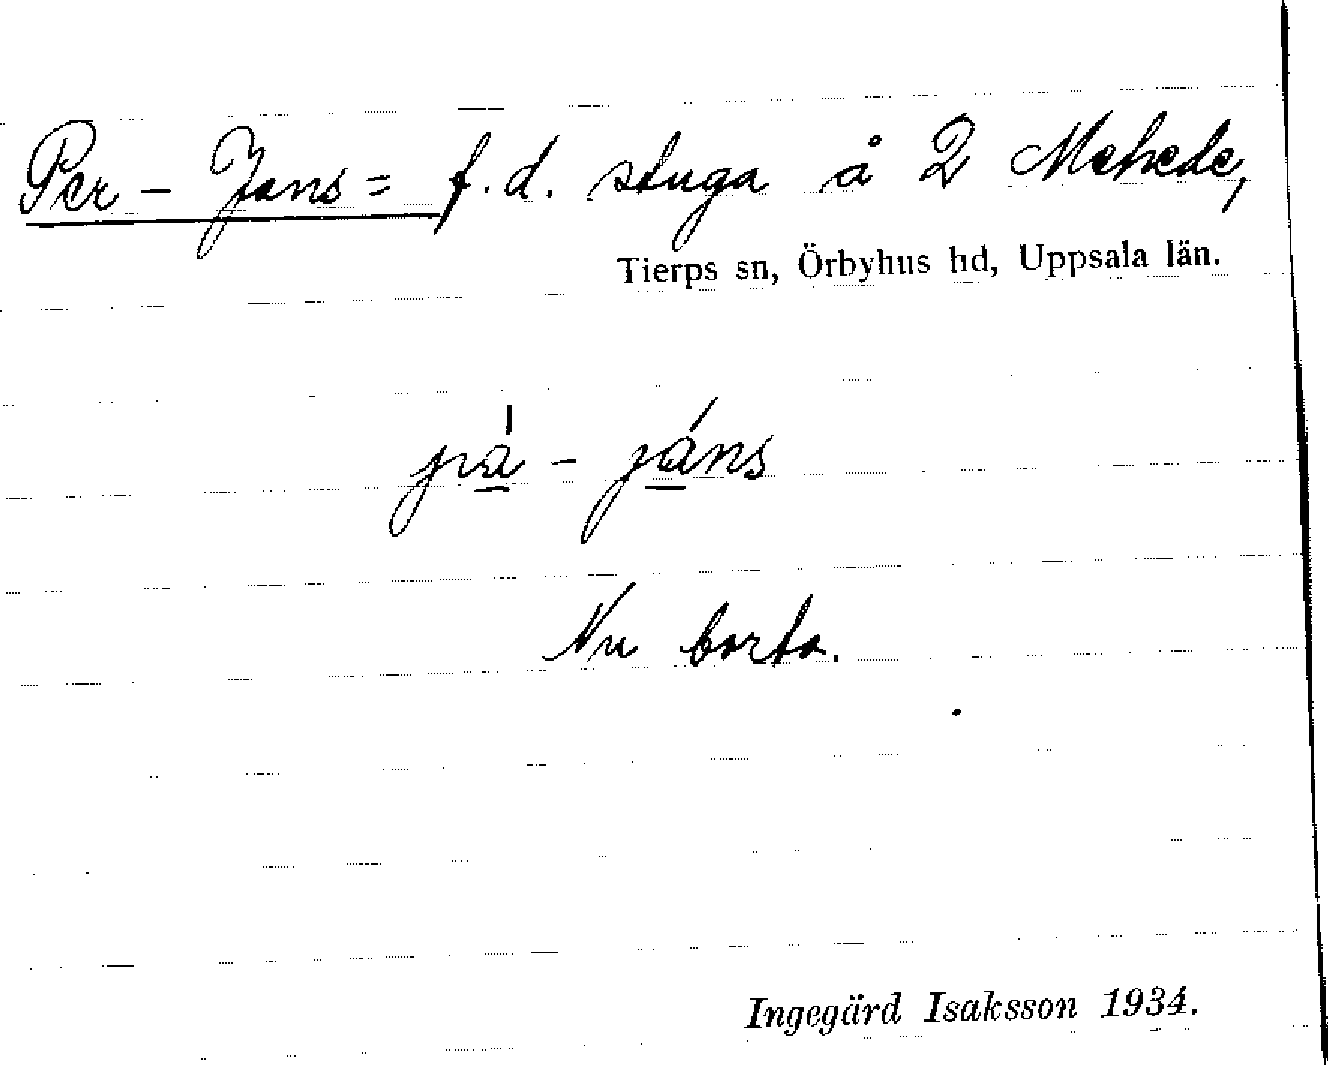 Per - Jans = f.d. stuga å 2 Mehede,
Tierps sn, Örbyhus hd, Uppsala län.
Nu borta.
Ingegärd Isaksson 1934.